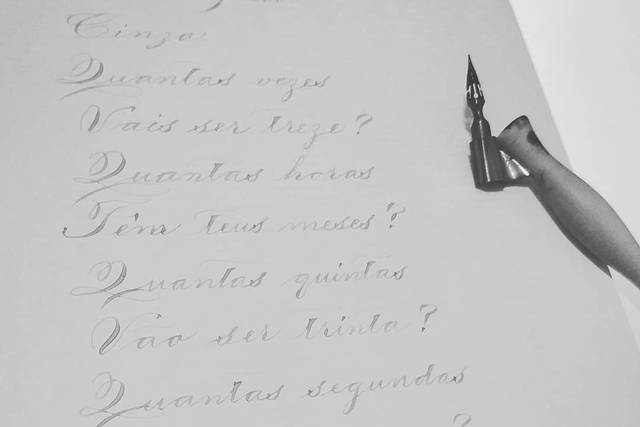 Cinza
Quantas vezes
Vais ser treze?
Quantas horas
Têm teus meses?
Quantas quintas
Vão ser trinta?
Quantas segundas
?